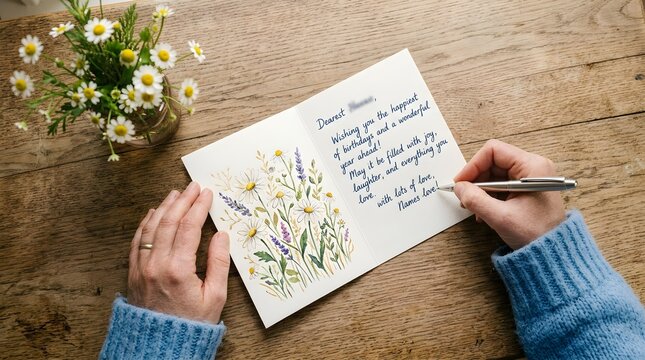 Dearest
Wishing you the happiest
of birthdays and a wonderful
year ahead!
May it be filled with joy,
laughter, and everything you
love.
with lots of love,
Names love